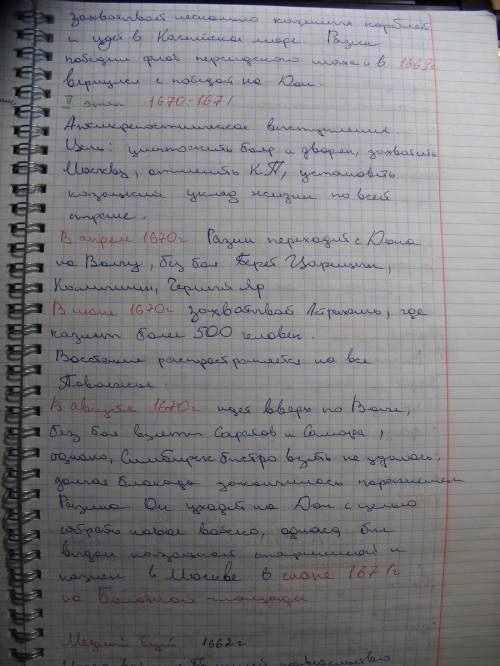 захватывает несколько казенных кораблей
и идет в Каспийское море. Разин
победил флот персидского шаха и в 1669г
вернулся с победой на Дон.
II этап 1670-1671
Антикрепостническое выступление.
Цели: уничтожить бояр и дворян, захватить
Москву, отменить КП, установить
казацкий уклад жизни по всей
стране.
В апреле 1670г Разин переходит с Дона
на Волгу, без боя берет Царицын,
Камышин, Черный Яр
В июне 1670г захватывает Астрахань, где
казнит более 500 человек.
Восстание распространяется на все
Поволжье.
В августе 1670г идет вверх по Волге,
без боя взяты Саратов и Самара,
однако, Симбирск быстро взять не удалось,
долгая блокада закончилась поражением
Разина Он уходит на Дон с целью
собрать новое войско, однако был
выдан казацкой старшиной и
казнен в Москве в июне 1671г
на Болотной площади
Медный бунт 1662г